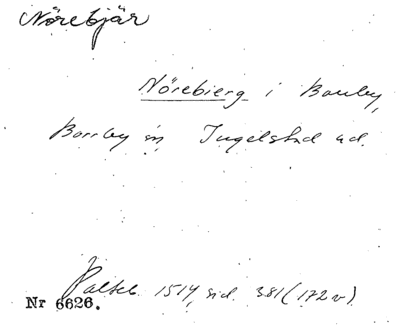 Nörebjär
Nörebierg i Borrby,
Borrby sn Ingelstad hd.
Palteb. 1514, sid. 381 (172 v)
Nr 6626.